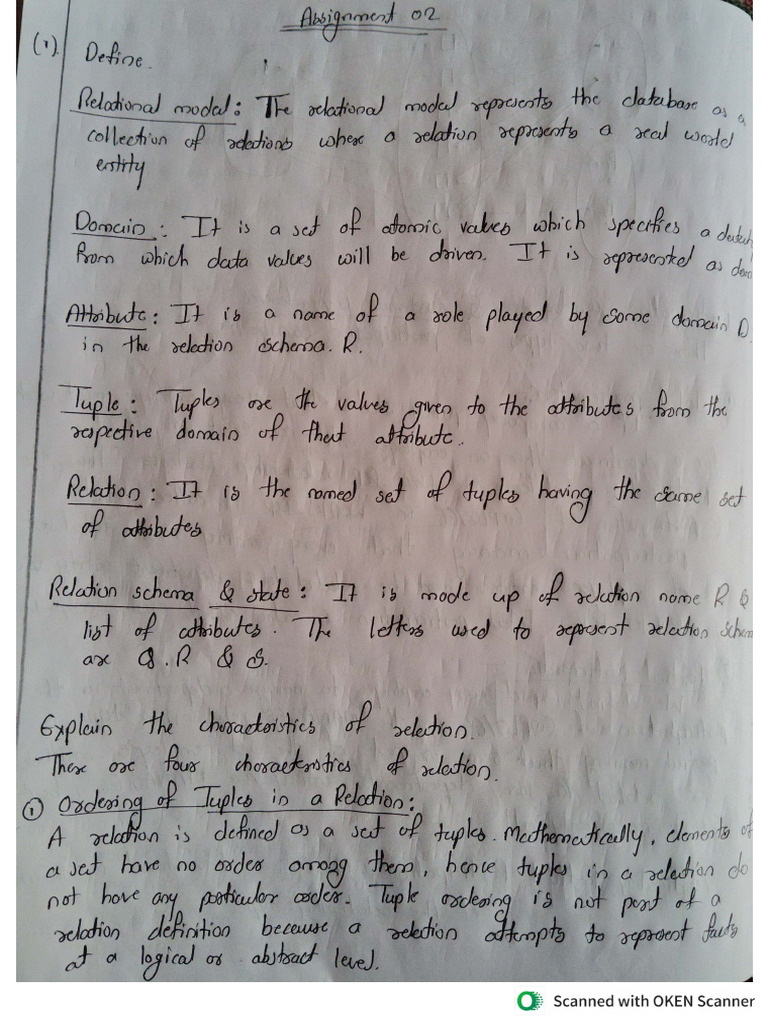 Assignment 02
(1). Define.
Relational modal: The relational modal represents the database as a
collection of relations where a relation represents a real world
entity
Domain: It is a set of atomic values which specifies a
from which data values will be driven. It is represented as
Attribute: It is a name of a role played by some domain D.
in the relation schema. R.
Tuple: Tuples are the values given to the attributes from the
respective domain of that attribute.
Relation: It is the named set of tuples having the same set
of attributes
Relation schema & state: It is made up of relation name R &
list of attributes. The letters used to represent relation
are Q. R & S.
Explain the charactoristics of relation.
There are four characteristics of relation.
① Ordering of Tuples in a Relation:
A relation is defined as a set of tuples. Mathematically, elements of
a set have no order among them, hence tuples in a relation do
not have any particular order. Tuple ordering is not part of a
relation definition because a relation attempts to represent facts
at a logical or abstract level.
Scanned with OKEN Scanner